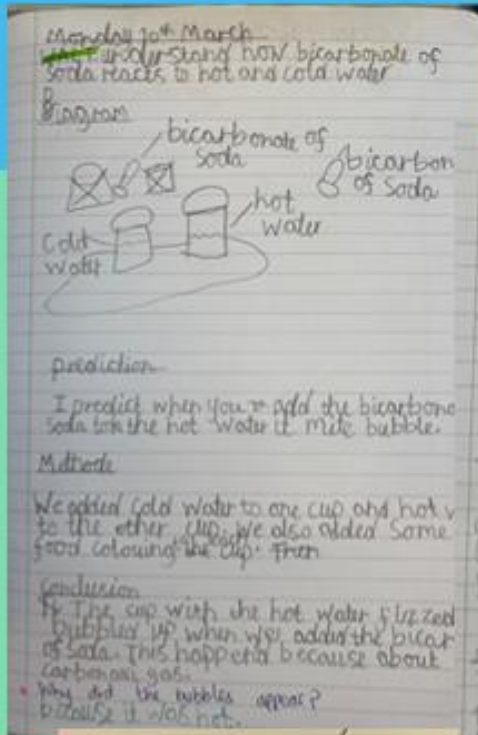 Monday 10th March
understand how bicarbonate of
Soda reacts to hot and cold water
Diagram
bicarbonate of
Soda
bicarbon
of Soda
hot
water
Cold
water
prediction
I predict when you add the bicarbone
Soda the hot water it mite bubble.
Methode
We added cold water to one cup and hot w
to the other cup. We also added Some
food colouring the cup. Then
Conclusion
The cup with the hot water fizzed
bubbled up when we added the bicar
of soda. This happend because about
carbonoxi gas.
Why did the bubbles appear?
because it was hot.